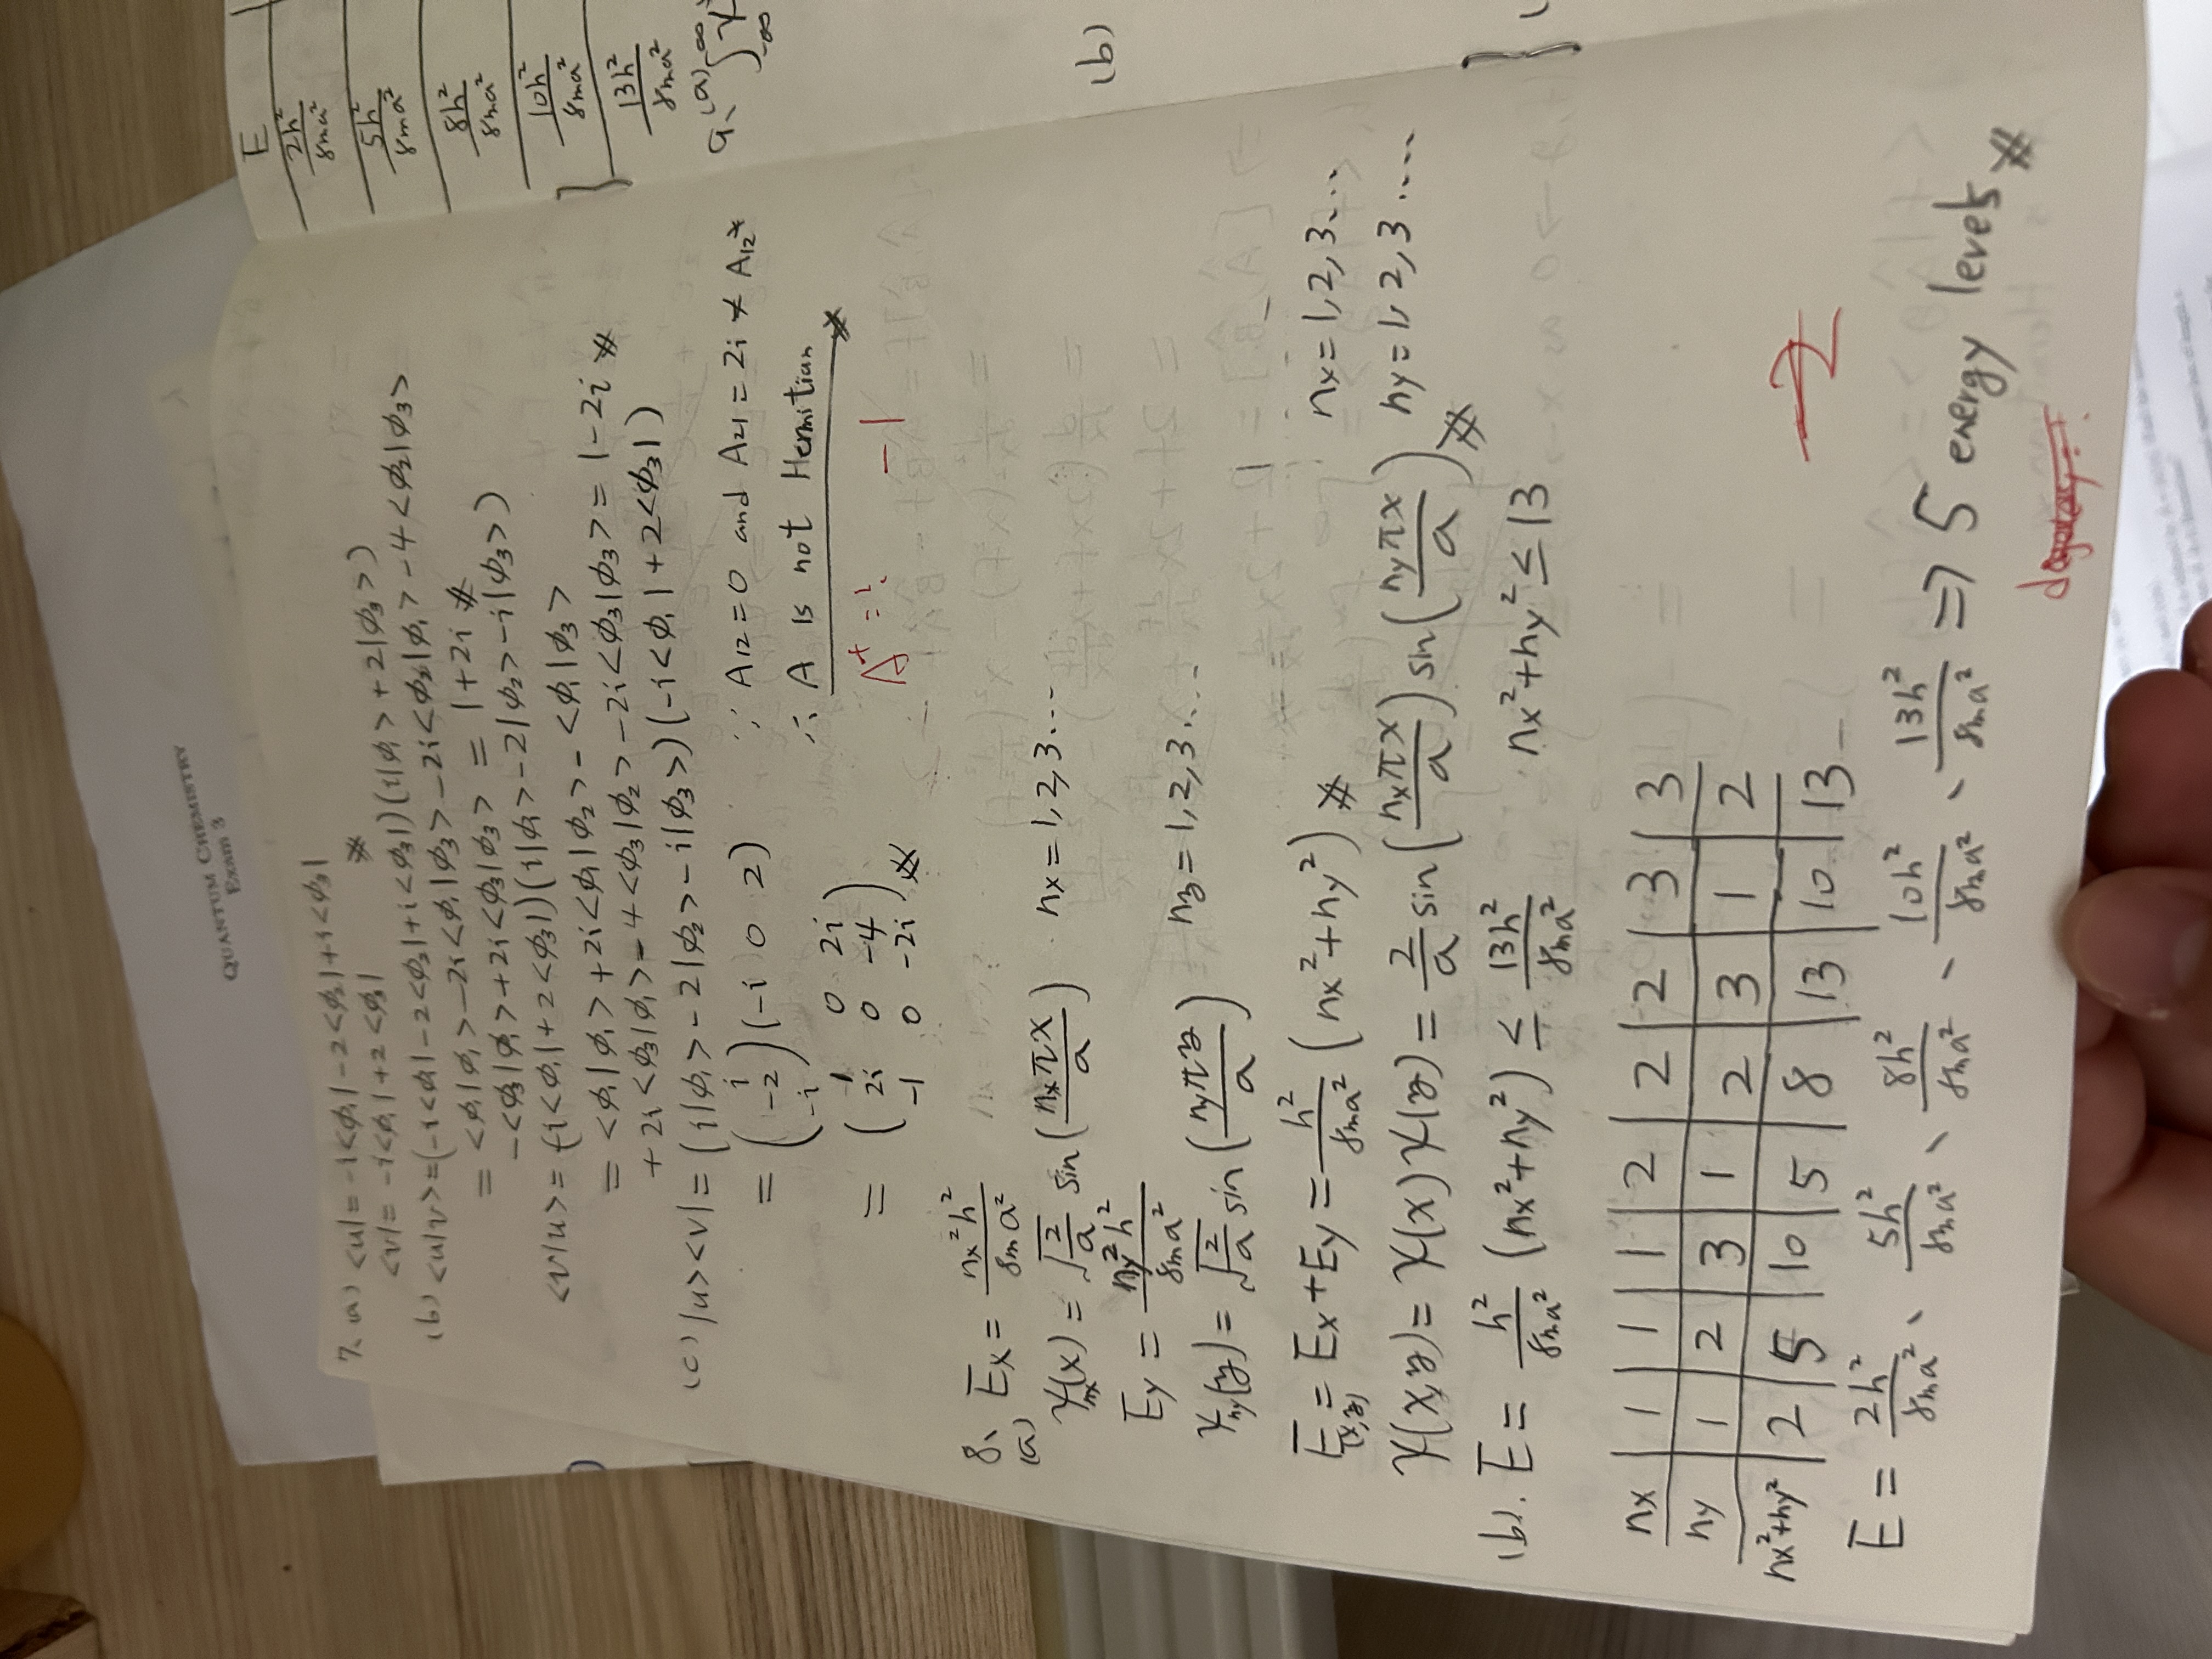 QUANTUM CHEMISTRY
Exam 3
7、(a) <u| = -i<φ₁| - 2<φ₂| + i<φ₃|
<v| = -i<φ₁| + 2<φ₃| ※
(b) <u|v> = (-i<φ₁| - 2<φ₂| + i<φ₃|)(i|φ₁> + 2|φ₃>)
= <φ₁|φ₁> - 2i<φ₁|φ₃> - 2i<φ₂|φ₁> - 4<φ₂|φ₃>
- <φ₃|φ₁> + 2i<φ₃|φ₃> = 1+2i ※
<v|u> = (-i<φ₁| + 2<φ₃|)(i|φ₁> - 2|φ₂> - i|φ₃>)
= <φ₁|φ₁> + 2i<φ₁|φ₂> - <φ₁|φ₃>
+ 2i<φ₃|φ₁> - 4<φ₃|φ₂> - 2i<φ₃|φ₃> = 1-2i ※
(c) |u><v| = (i|φ₁> - 2|φ₂> - i|φ₃>)(-i<φ₁| + 2<φ₃|)
= (i -2 -i)(-i 0 2)
∵ A12 = 0 and A21 = 2i ≠ A12*
∴ A is not Hermitian ※
= (1 0 2i
2i 0 -4
-1 0 -2i) ※
A⁺ = ? -1
8、(a) Ex = nx²h² / 8ma²
ψnx(x) = √(2/a) sin(nxπx / a) nx = 1,2,3...
Ey = ny²h² / 8ma²
ψny(y) = √(2/a) sin(nyπy / a) ny = 1,2,3....
E(x,y) = Ex + Ey = h²/8ma² (nx² + ny²) ※ nx = 1,2,3...
ψ(x,y) = ψ(x)ψ(y) = 2/a sin(nxπx / a) sin(nyπx / a) ※ ny = 1,2,3....
(b). E = h²/8ma² (nx² + ny²) ≤ 13h²/8ma² nx² + ny² ≤ 13
nx | 1 | 1 | 1 | 2 | 2 | 2 | 3 | 3
ny | 1 | 2 | 3 | 1 | 2 | 3 | 1 | 2
nx²+ny² | 2 | 5 | 10 | 5 | 8 | 13 | 10 | 13
-2
E = 2h²/8ma²、5h²/8ma²、8h²/8ma²、10h²/8ma²、13h²/8ma² ⇒ 5 energy levels ※
E
2h²/8ma²
5h²/8ma²
8h²/8ma²
10h²/8ma²
13h²/8ma²
9、(a) ∫
(b)